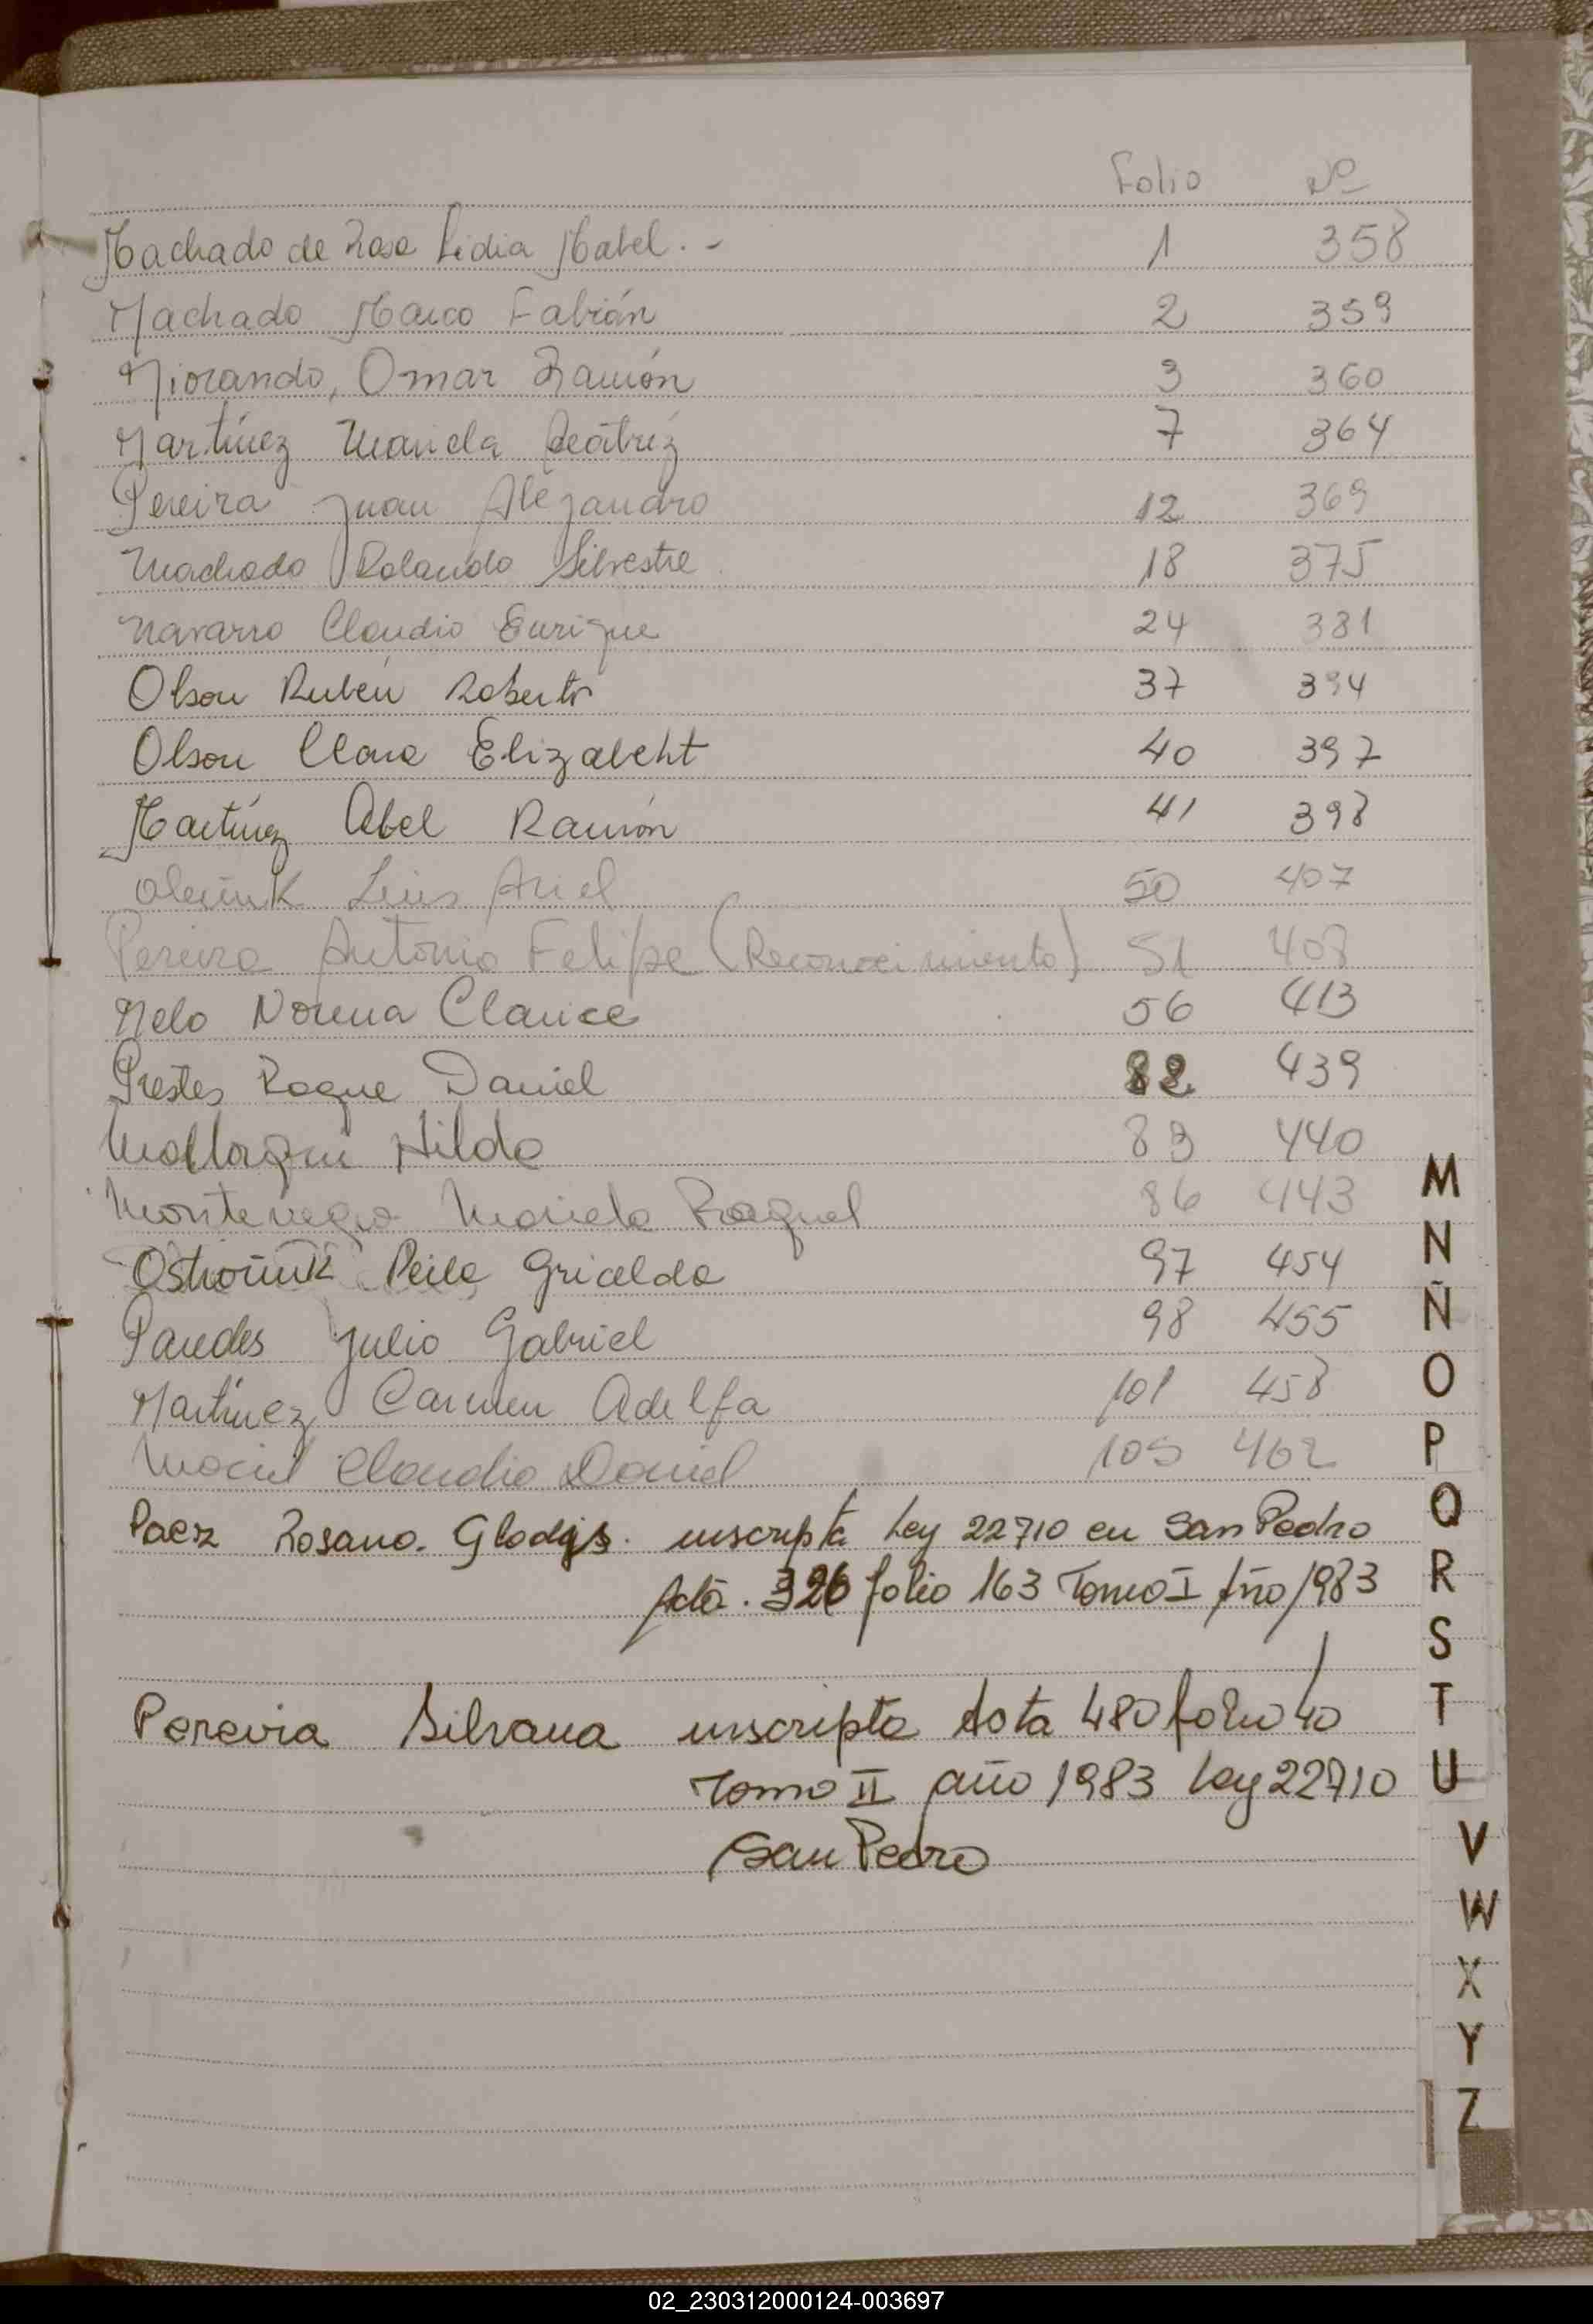 Folio Nº
Machado de Rosa Lidia Mabel. - 1 358
Machado Marco Fabián 2 359
Morando, Omar Ramón 3 360
Martínez Mariela Beatriz 7 364
Pereira Juan Alejandro 12 369
Machado Rolando Silvestre 18 375
Navarro Claudio Enrique 24 381
Olson Rubén Roberto 37 394
Olson Clara Elizabeht 40 397
Martínez Abel Ramón 41 398
Luis Ariel 50 407
Pereira Antonio Felipe (Reconocimiento) 51 408
Melo Norma Clarice 56 413
Prestes Roque Daniel 82 439
Hilda 83 440
Montenegro Mariela Raquel 86 443
Gricelda 97 454
Paredes Julio Gabriel 98 455
Martínez Carmen Adelfa 101 458
Maciel Claudio Daniel 105 462
Paez Rosana. Gladys. inscripta Ley 22710 en San Pedro
Acta. 326 folio 163 Tomo I Año 1983
Pereira Silvana inscripta Acta 480 folio 40
Tomo II año 1983 Ley 22710
San Pedro
M
N
Ñ
O
P
Q
R
S
T
U
V
W
X
Y
Z
02_230312000124-003697